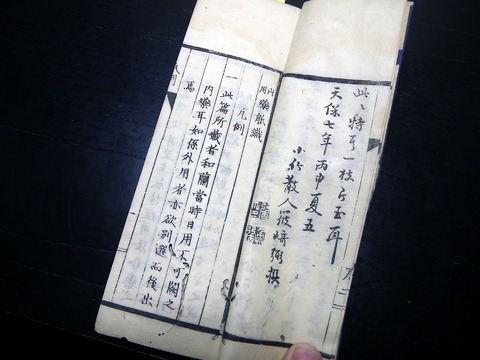 此特其一枝片玉耳
天保七年丙申夏五
散人筱﨑弼撰
内
用藥能識
凡例
一此篇所載者和蘭當時日用不可闕之
内藥耳如係外用者亦欲別選而後出
焉